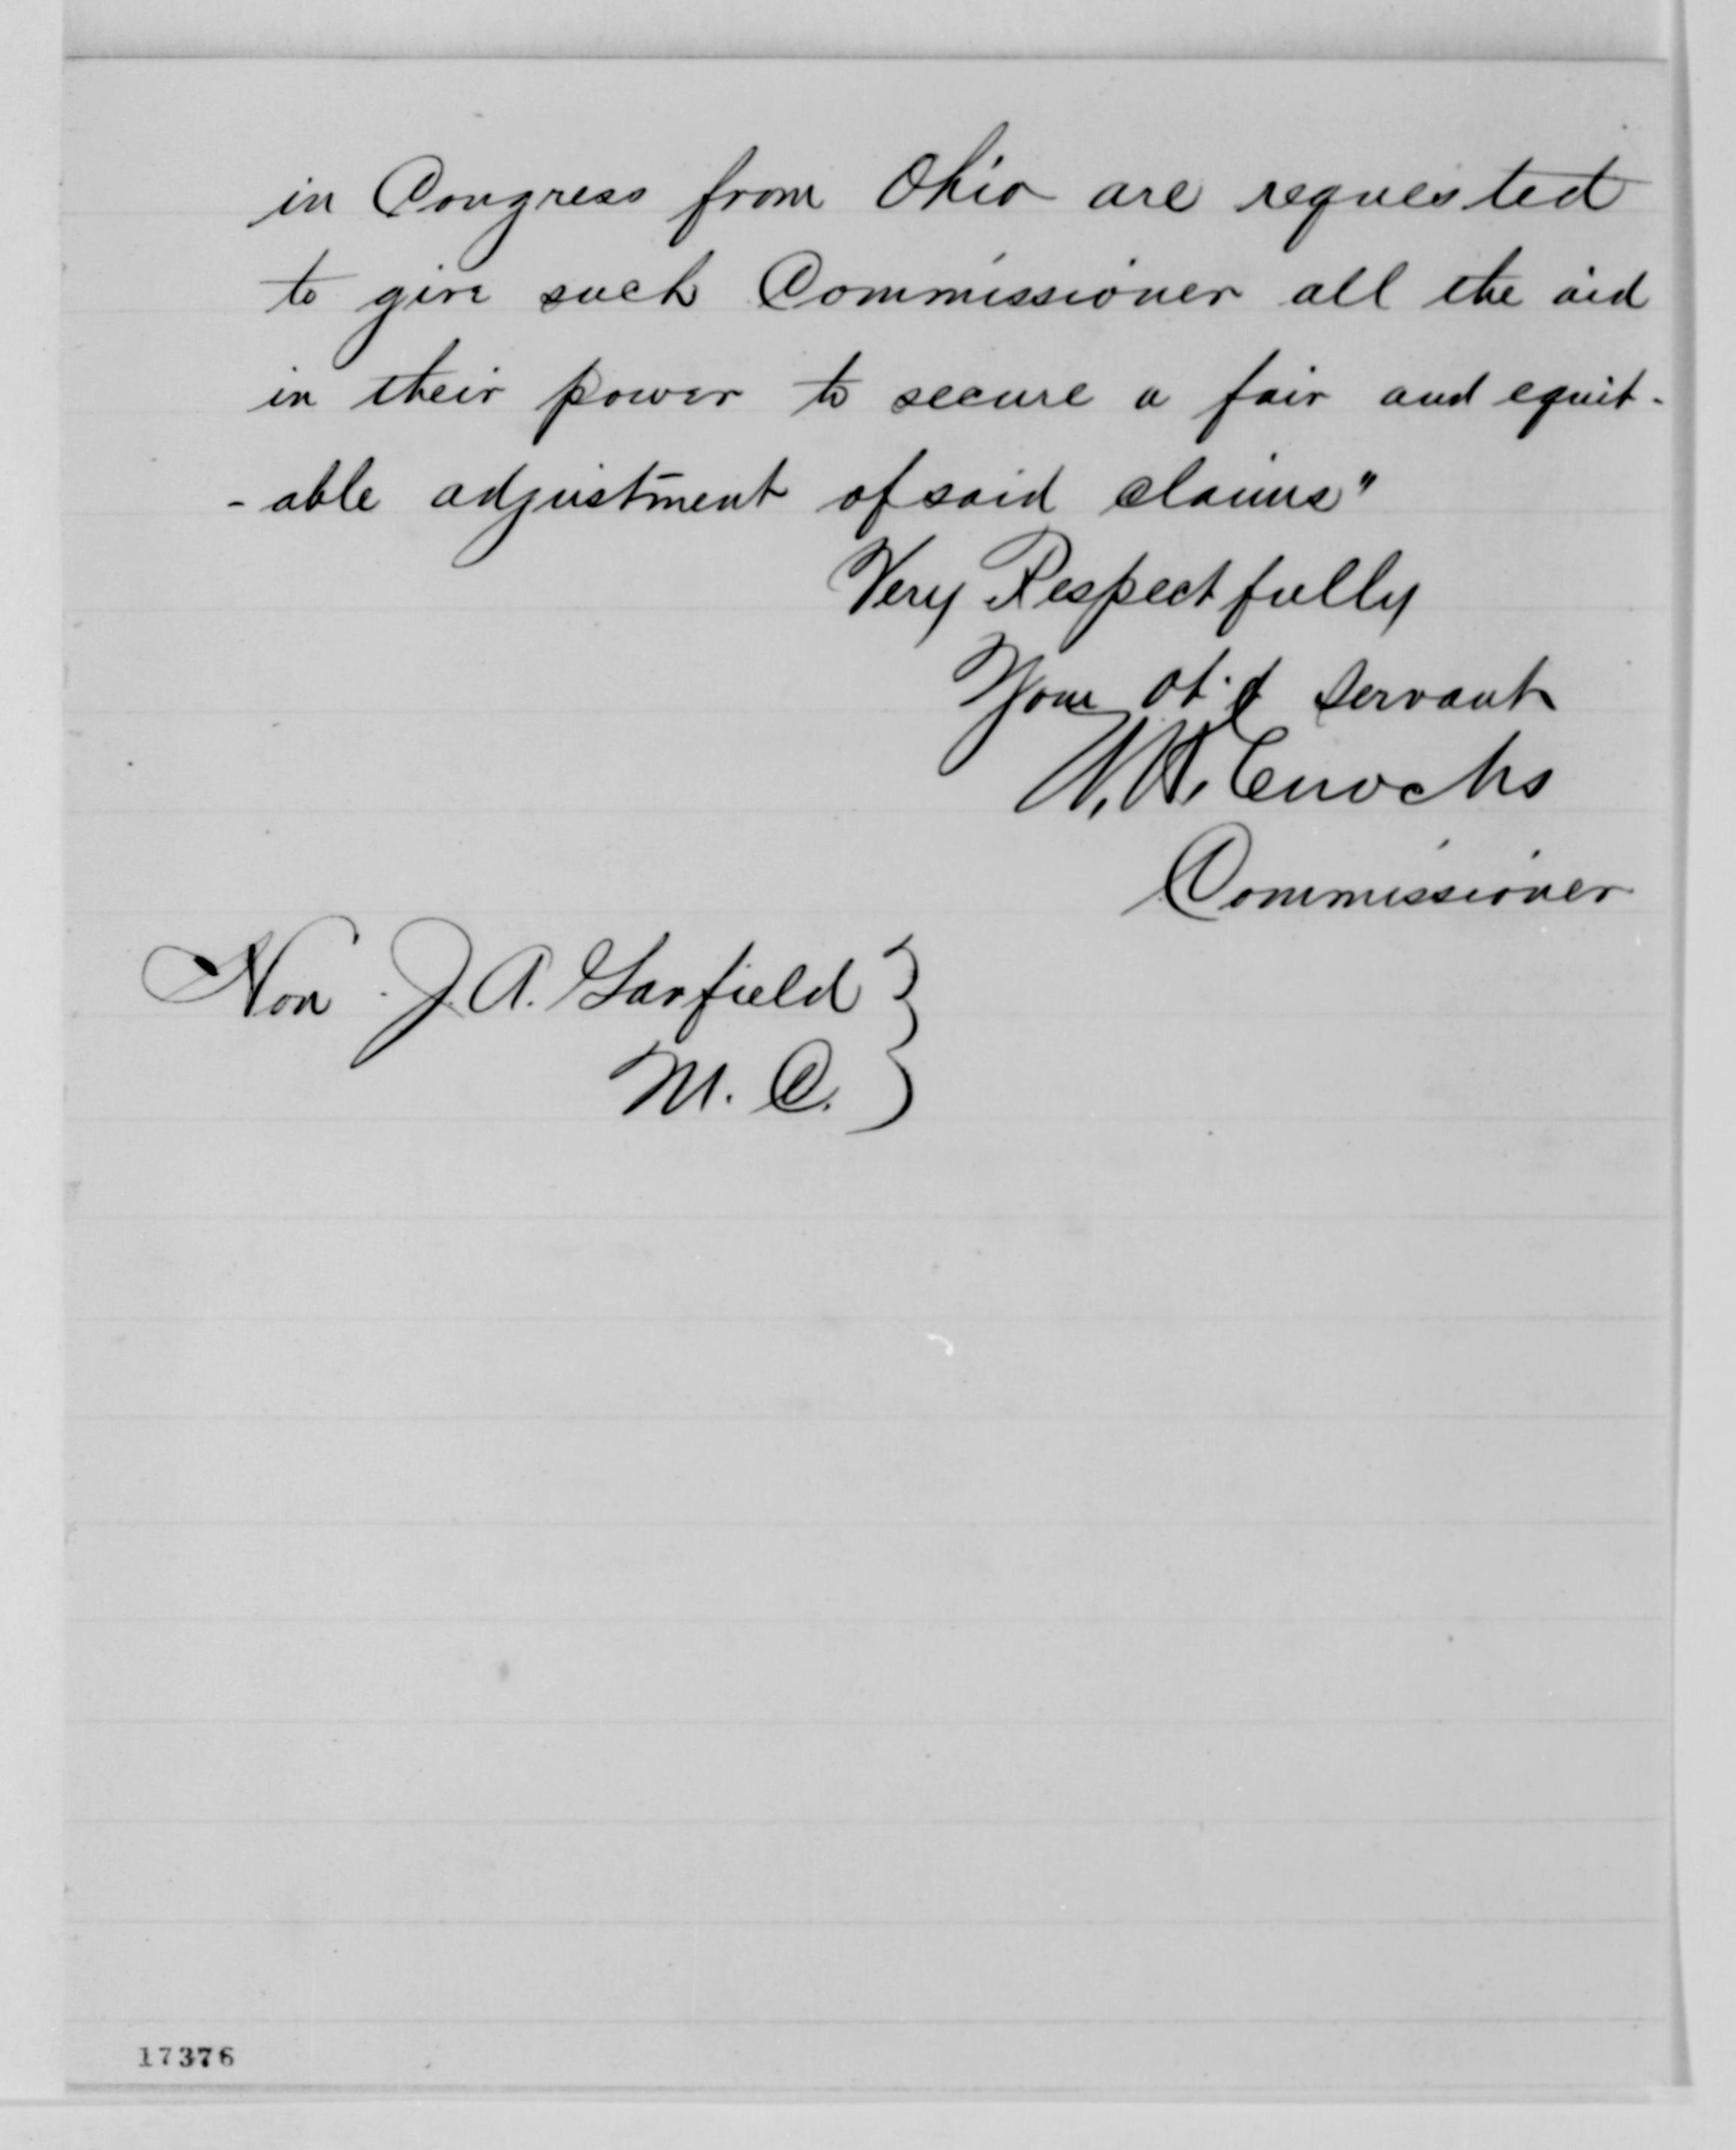 in Congress from Ohio are requested
to give such Commissioner all the aid
in their power to secure a fair and equit-
-able adjustment of said claims"
Very Respectfully
Your ob'd't servant
W. H. Enochs
Commissioner
Hon. J. A. Garfield }
M. C. }
17376